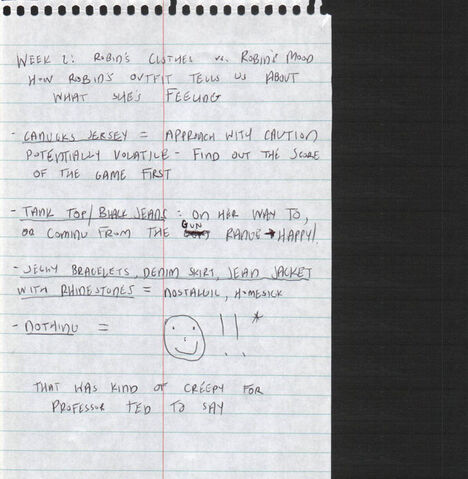 WEEK 2: ROBIN'S CLOTHES vs. ROBIN'S MOOD
HOW ROBIN'S OUTFIT TELLS US ABOUT
WHAT SHE'S FEELING
- CANUCKS JERSEY = APPROACH WITH CAUTION
POTENTIALLY VOLATILE - FIND OUT THE SCORE
OF THE GAME FIRST
- TANK TOP/BLACK JEANS: ON HER WAY TO,
OR COMING FROM THE GUN RANGE → HAPPY!
- JELLY BRACELETS, DENIM SKIRT, JEAN JACKET
WITH RHINESTONES = NOSTALGIC, HOMESICK
- NOTHING = !! *
THAT WAS KIND OF CREEPY FOR
PROFESSOR TED TO SAY